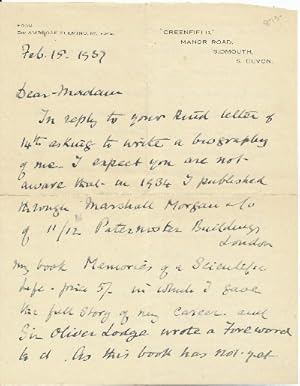 FROM
SIR AMBROSE FLEMING, M.A., F.R.S.
"GREENFIELD,"
MANOR ROAD,
SIDMOUTH,
S. DEVON.
Feb. 15. 1937
Dear Madam
In reply to your kind letter of
14th asking to write a biography
of me. I expect you are not
aware that in 1934 I published
through Marshall Morgan & Co
of 11/12 Paternoster Buildings
London
my book Memories of a Scientific
Life - price 5/- in which I gave
the full story of my career and
Sir Oliver Lodge wrote a Foreword
to it. As this book has not yet